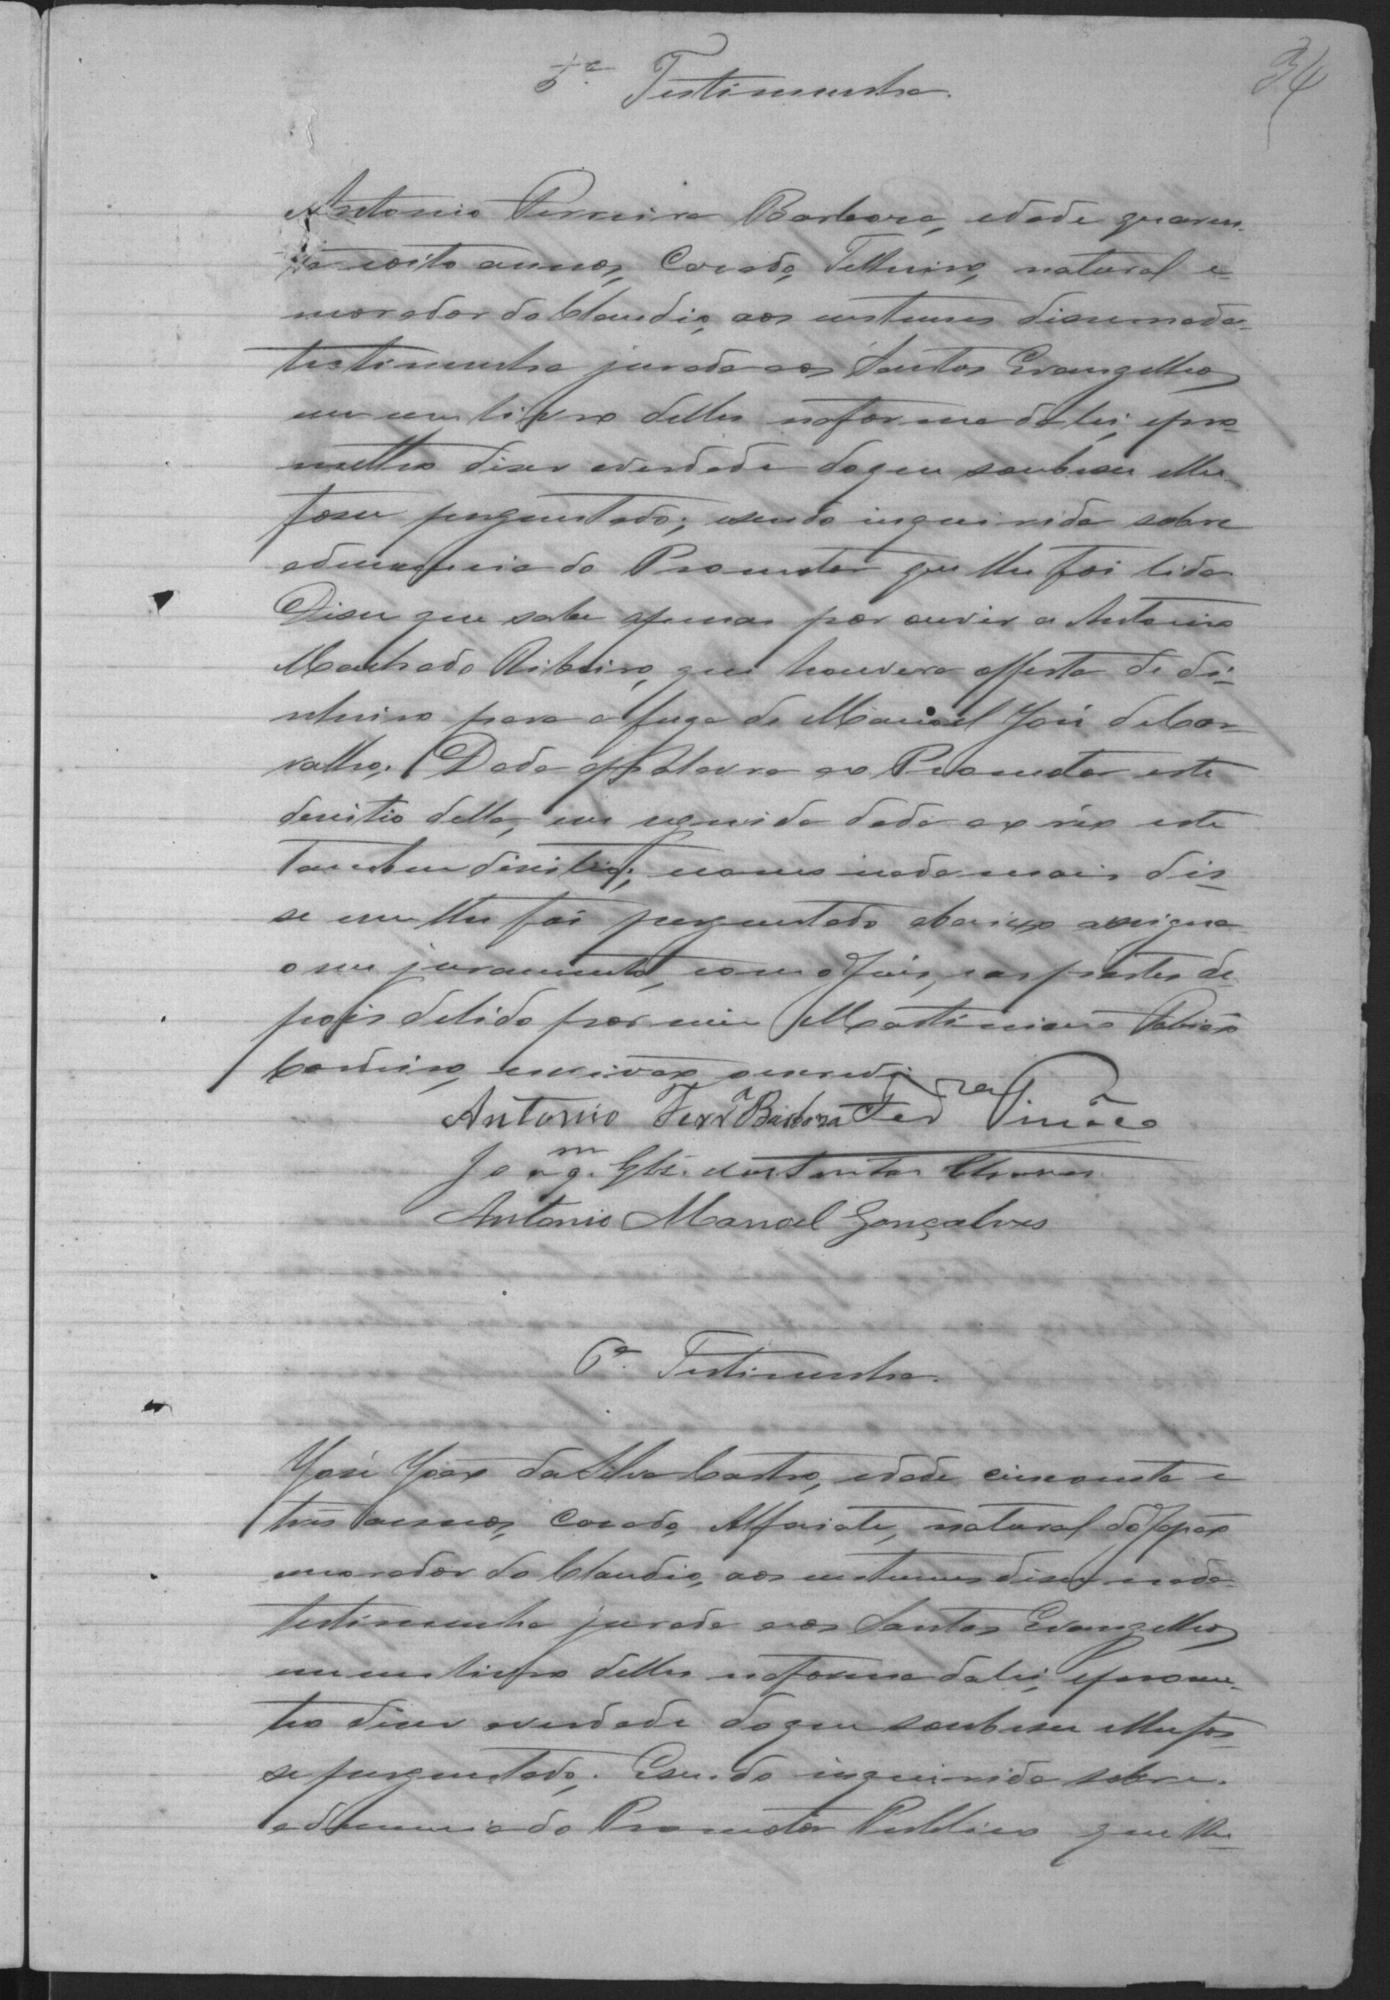 34
5ª Testimunha.
Antonio Ferreira Barbosa, edade quaren-
ta e oito annos, Casado, Telheiro, natural e
morador do Claudio, aos custumes disse nada
testimunha jurada aos Santos Evangelhos
em um livro delles na forma da lei, e pro-
metteo diser a verdade do que soubesse e lhe
fosse perguntado; e sendo inquirida sobre
a denuncia do Promotor que lhe foi lida
Disse que sabe apenas por ouvir a Antonio
Machado Ribeiro, que houvera offerta de di-
nheiro para a fuga de Manoel José de Car-
valho. Dada a palavra ao Promotor este
desistio della, em seguida dada ao réo este
tambem desistio; e como nada mais dis-
se nem lhe foi perguntado abaixo assigna
o seu juramento, com o Juis, e as partes de-
pois de lido por mim Martiniano
Cordeiro, escrivão que escrevi
Antonio Ferrª Barbosa
Joaqm. Glz. dos Santos Chaves
Antonio Manoel Gonçalves
6ª Testimunha.
José João da Silva Castro, edade cincoenta e
tres annos, Casado, Alfaiate, natural do Japão
morador do Claudio, aos custumes disse nada
testimunha jurada aos Santos Evangelhos
em um livro delles na forma da lei, e prome-
teo diser a verdade do que soubesse e lhe fos-
se perguntado. E sendo inquirida sobre
a denuncia do Promotor Publico que lhe